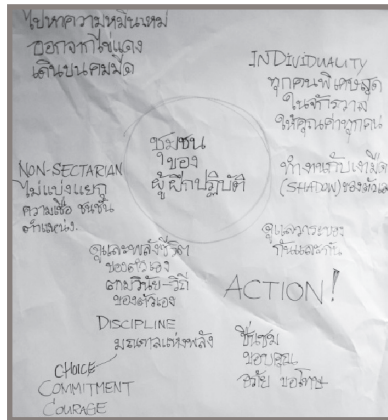 ไปหาความหมิ่นเหม่
ออกจากไข่แดง
เดินบนคมมีด
INDIVIDUALITY
ทุกคนพิเศษสุด
ในจักรวาล
ให้คุณค่าทุกคน
ชุมชน
ของ
ผู้ฝึกปฏิบัติ
NON-SECTARIAN
ไม่แบ่งแยก
ความเชื่อ ชนชั้น
ตำแหน่ง
ทำงานกับเงามืด
(SHADOW) ของตัวเอง
ดูแลวาระของ
กันและกัน
ดูแลพลังชีวิต
ของตัวเอง
ตามวินัย-วิถี
ของตัวเอง
ACTION!
DISCIPLINE
มณฑลแห่งพลัง
CHOICE
COMMITMENT
COURAGE
ชื่นชม
ขอบคุณ
อภัย ขอโทษ